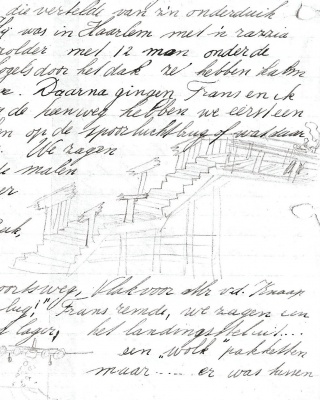 die vertelde van z'n onderduik
was in Haarlem met 'n razzia
zolder met 12 man onder de
ogels door het dak ze hebben
Daarna gingen Frans en ik
de heenweg hebben we eerst een
en op de spoorluchtbrug of wat daar
We zagen
de malen
er
oortsweg, Vlak voor v.d. Knaap
brug!" Frans remde, we zagen een
lager, het landingsgestel uit....
een „wolk" pakketten
maar ..... er was